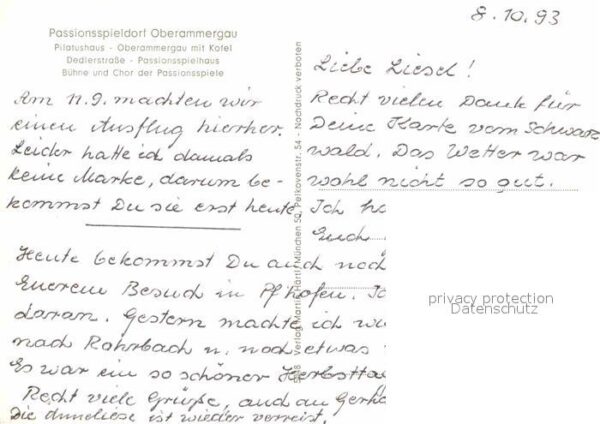 Passionsspieldorf Oberammergau
Pilatushaus - Oberammergau mit Kofel
Dedlerstraße - Passionsspielhaus
Bühne und Chor der Passionsspiele
Am 11.9. machten wir
einen Ausflug hierher.
Leider hatte ich damals
keine Marke, darum be-
kommst Du sie erst heute
Heute bekommst Du auch noch
Eueren Besuch in Pfhofen.
daran. Gestern machte ich
nach Rohrbach u. noch etwas
Es war ein so schöner Herbstta
Recht viele Grüße, auch an
Die Anneliese ist wieder verreist.
Verlag Martin Härtl, München 50, Pelkovenstr. 54 - Nachdruck verboten
8.10.93
Liebe Liesel!
Recht vielen Dank für
Deine Karte vom Schwarz
wald. Das Wetter war
wohl nicht so gut.
Ich
Euch
privacy protection
Datenschutz